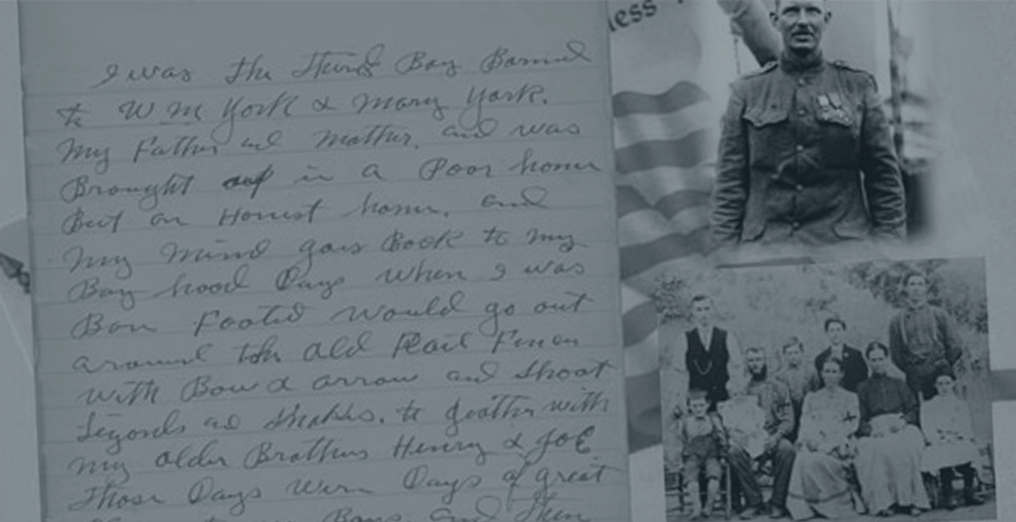 I was the Third Boy Borned
to Wm York & Mary York.
my Father and mother. and was
Brought up in a Poor home
But an Honest home. and
my mind goes Back to my
Boy hood Days when I was
Bare Footed would go out
around the old Rail Fence
with Bow & arrow and shoot
and snakes. to geather with
my older Brothers Henry & JOE
Those Days were Days of great
Boys. and then
less